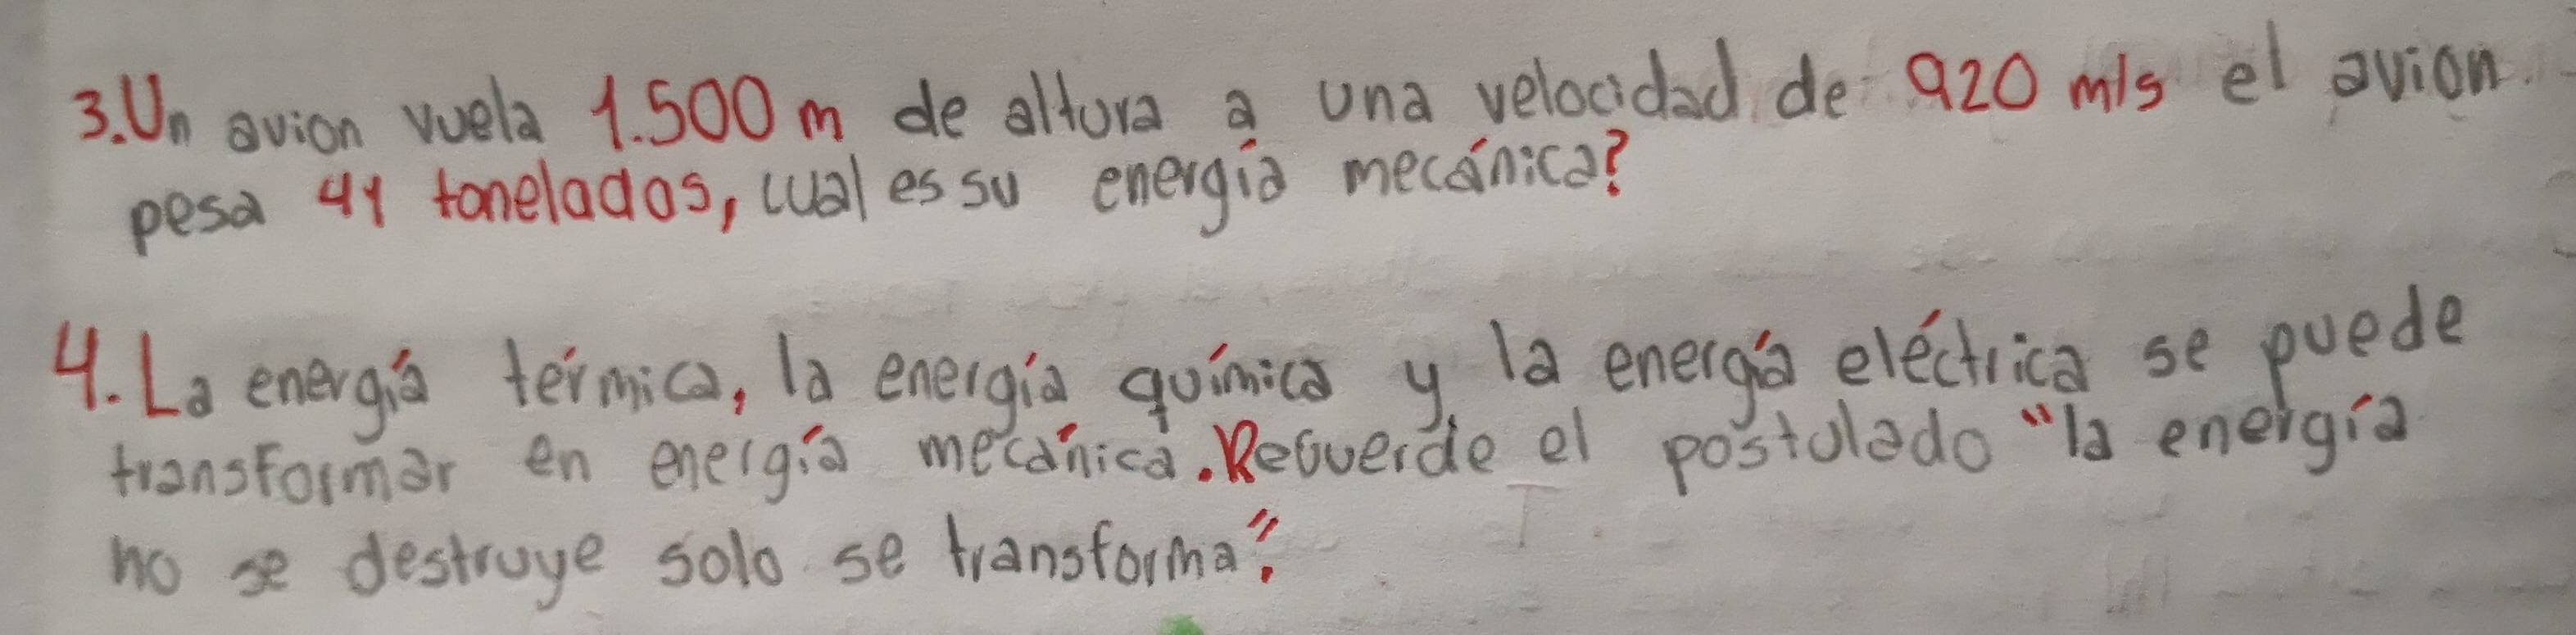 3. Un avion vuela 1.500 m de altura a una velocidad de 920 m/s el avion
pesa 41 toneladas, cual es su energía mecánica?
4. La energía térmica, la energía química y la energía eléctrica se puede
transformar en energía mecánica. Recuerde el postulado "la energía
no se destruye solo se transforma".